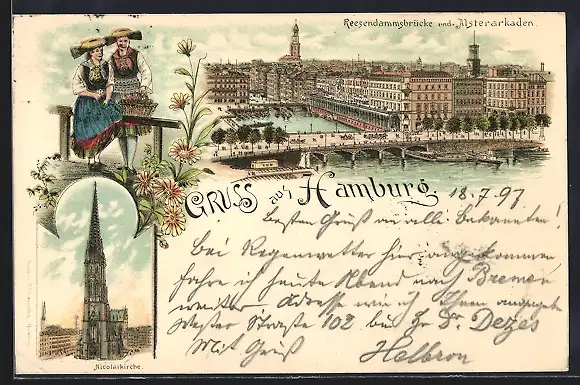 Reesendammsbrücke und Alsterarkaden.
Gruss aus Hamburg.
18.7.97
Besten Gruß an alle Bekannten!
Bei Regenwetter hier angekommen
fahre ich heute Abend nach Bremen
weiter. Adresse wie ich Ihnen
Straße 102 bei Dr. Dezes
Mit Gruß
Helbron
Nicolaikirche.